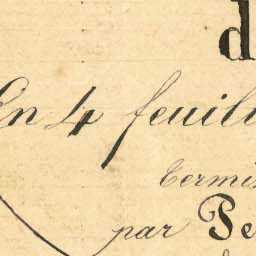 d
En 4 feuill
termi
par Pe